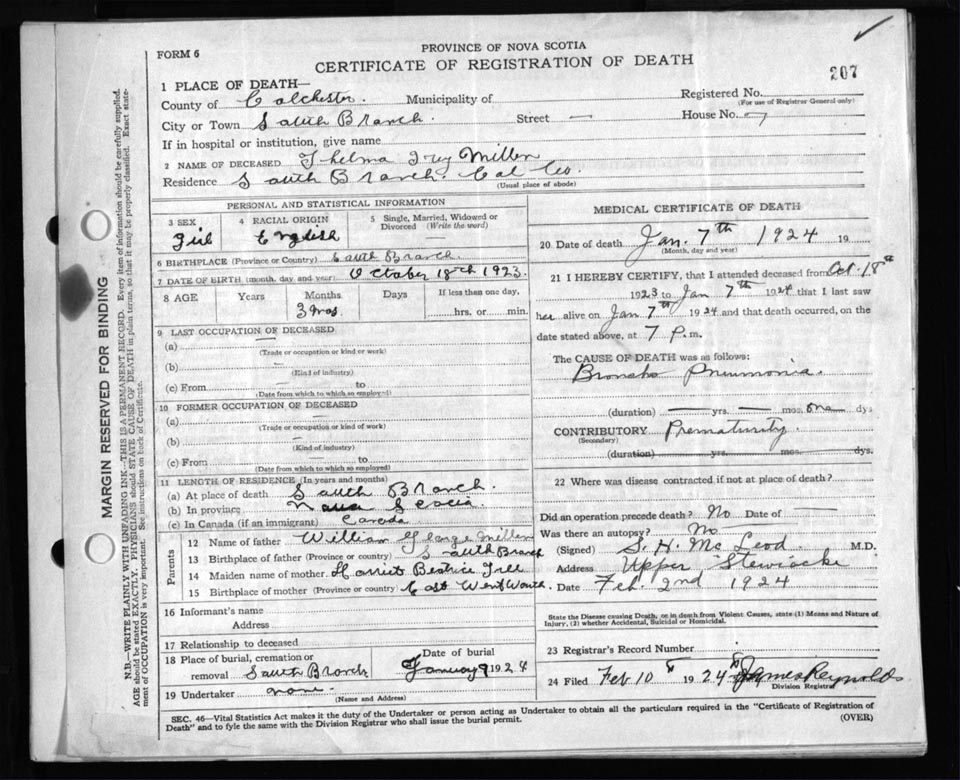 PROVINCE OF NOVA SCOTIA
FORM 6
CERTIFICATE OF REGISTRATION OF DEATH
207
1 PLACE OF DEATH—
Registered No.
(For use of Registrar General only)
County of Colchester. Municipality of
City or Town South Branch. Street — House No.
If in hospital or institution, give name
2 NAME OF DECEASED Thelma Ivy Miller
Residence South Branch. Col Co.
(Usual place of abode)
PERSONAL AND STATISTICAL INFORMATION
3 SEX 4 RACIAL ORIGIN 5 Single, Married, Widowed or Divorced (Write the word)
Girl English —
6 BIRTHPLACE (Province or Country) South Branch
7 DATE OF BIRTH (month, day and year) October 18th 1923.
8 AGE Years Months Days If less than one day,
3 mos hrs. or min.
9 LAST OCCUPATION OF DECEASED
(a) —
(Trade or occupation or kind or work)
(b) —
(Kind of industry)
(c) From — to
(Date from which to which so employed)
10 FORMER OCCUPATION OF DECEASED
(a) —
(Trade or occupation or kind of work)
(b) —
(Kind of industry)
(c) From — to
(Date from which to which so employed)
11 LENGTH OF RESIDENCE (In years and months)
(a) At place of death South Branch.
(b) In province Nova Scotia
(c) In Canada (if an immigrant) Canada
Parents
12 Name of father William George Miller
13 Birthplace of father (Province or country) South Branch
14 Maiden name of mother Harriet Beatrice
15 Birthplace of mother (Province or country) East Wentworth
16 Informant's name
Address
17 Relationship to deceased
18 Place of burial, cremation or removal South Branch Date of burial January 9 1924
19 Undertaker none.
(Name and Address)
MEDICAL CERTIFICATE OF DEATH
20. Date of death Jan. 7th 1924 19
(Month, day and year)
21 I HEREBY CERTIFY, that I attended deceased from Oct. 18th
1923 to Jan 7th 1924 that I last saw
her alive on Jan 7th 1924 and that death occurred, on the
date stated above, at 7 P.m.
The CAUSE OF DEATH was as follows:
Broncho Pneumonia.
(duration) — yrs. — mos. one dys
CONTRIBUTORY Prematurity.
(Secondary)
(duration) yrs. mos. dys.
22 Where was disease contracted if not at place of death?
Did an operation precede death? No Date of —
Was there an autopsy? No
(Signed) S. H. McLeod M.D.
Address Upper Stewiacke
Date Feb. 2nd 1924
State the Disease causing Death, or in death from Violent Causes, state (1) Means and Nature of
Injury, (2) whether Accidental, Suicidal or Homicidal.
23 Registrar's Record Number
24 Filed Feb 10th 1924 James Reynolds
Division Registrar
SEC. 46—Vital Statistics Act makes it the duty of the Undertaker or person acting as Undertaker to obtain all the particulars required in the "Certificate of Registration of
Death" and to fyle the same with the Division Registrar who shall issue the burial permit.
(OVER)
MARGIN RESERVED FOR BINDING
N.B.—WRITE PLAINLY WITH UNFADING INK—THIS IS A PERMANENT RECORD. Every item of information should be carefully supplied.
AGE should be stated EXACTLY. PHYSICIANS should STATE CAUSE OF DEATH in plain terms, so that it may be properly classified. Exact state-
ment of OCCUPATION is very important. See instructions on back of Certificate.